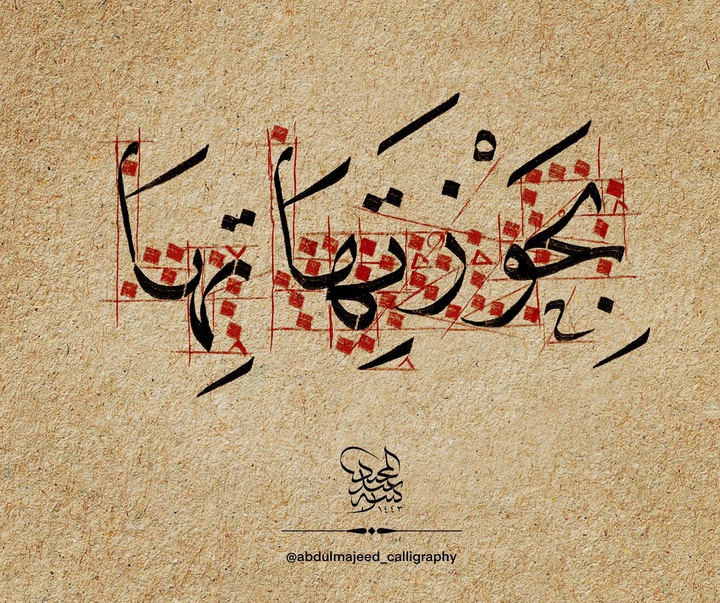 بِحَوْزَتِهَا تِهنَا
عبد المجيد
١٤٤٣
@abdulmajeed_calligraphy